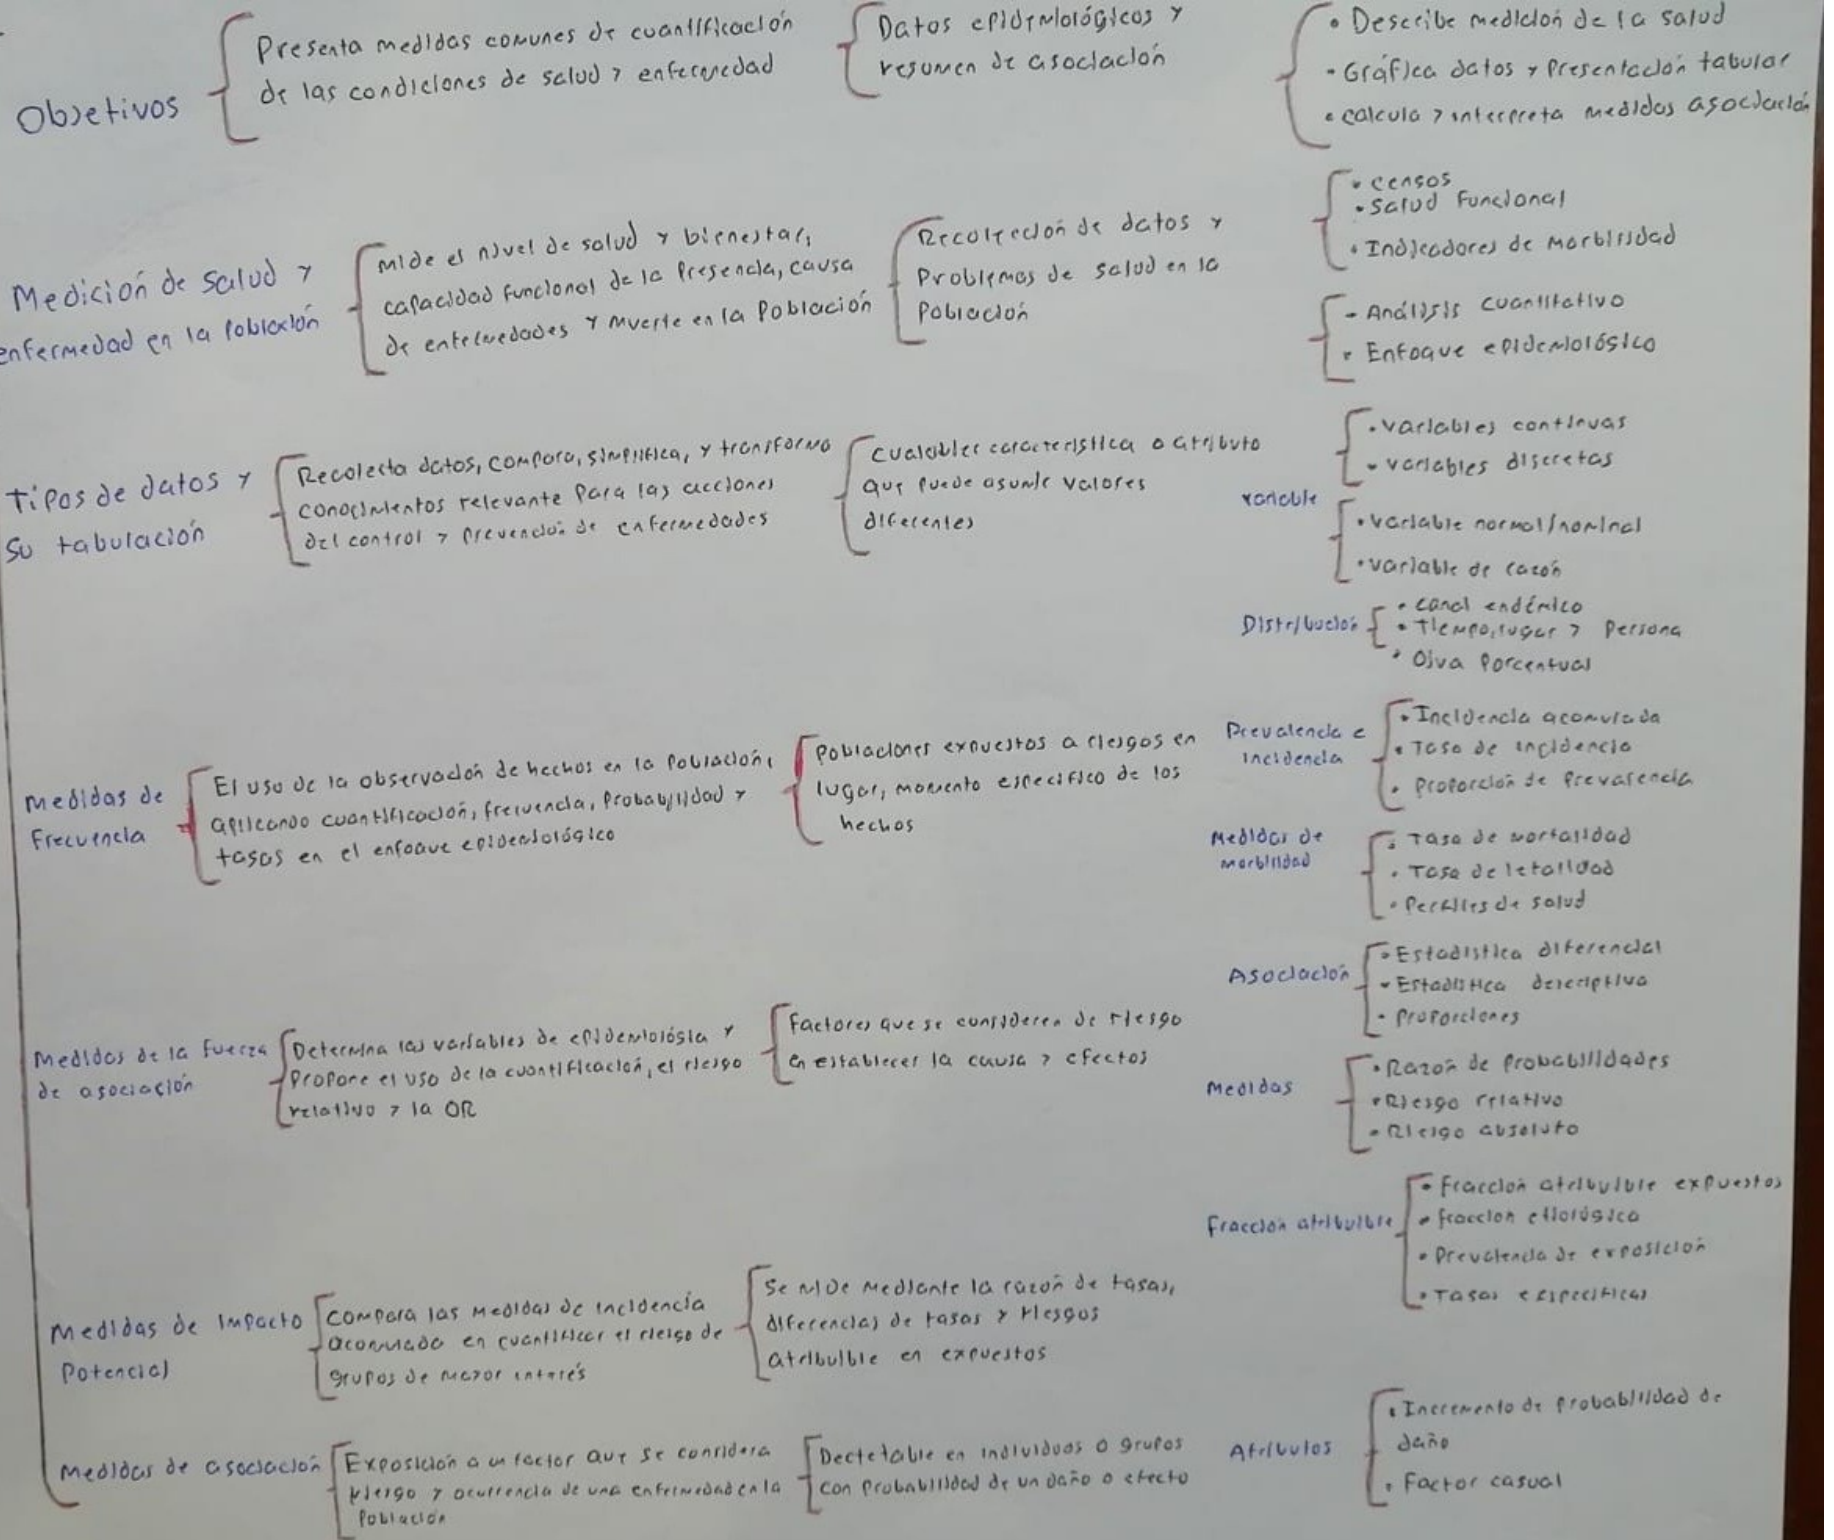 Objetivos
Presenta medidas comunes de cuantificación
de las condiciones de salud y enfermedad
Datos epidemiológicos y
resumen de asociación
• Describe medición de la salud
• Gráfica datos y Presentación tabular
• calcula y interpreta medidas asociación
Medición de salud y
enfermedad en la población
mide el nivel de salud y bienestar,
capacidad funcional de la Presencia, causa
de enfermedades y muerte en la Población
Recolección de datos y
Problemas de salud en la
Población
• censos
• Salud Funcional
• Indicadores de morbilidad
- Análisis cuantitativo
• Enfoque epidemiológico
Tipos de datos y
Su tabulación
Recolecta datos, compara, simplifica, y transforma
conocimientos relevante para las acciones
del control y prevención de enfermedades
cualquier característica o atributo
que puede asumir valores
diferentes
variable
• variables continuas
• variables discretas
• variable normal/nominal
• variable de razón
Distribución
• canal endémico
• Tiempo, lugar y Persona
• Ojva Porcentual
Medidas de
Frecuencia
El uso de la observación de hechos en la Población,
aplicando cuantificación, frecuencia, Probabilidad y
tasas en el enfoque epidemiológico
Poblaciones expuestos a riesgos en
lugar, momento especifico de los
hechos
Prevalencia e
incidencia
• Incidencia acomulada
• Tasa de incidencia
• Proporción de Prevalencia
Medidas de
morbilidad
• Tasa de mortalidad
• Tasa de letalidad
• Perfiles de salud
Medidas de la fuerza
de asociación
Determina las variables de epidemiología y
Propone el uso de la cuantificación, el riesgo
relativo y la OR
Factores que se consideren de riesgo
en establecer la causa y efectos
Asociación
• Estadística diferencial
• Estadística descriptiva
• Proporciones
Medidas
• Razón de Probabilidades
• Riesgo relativo
• Riesgo absoluto
Medidas de Impacto
Potencial
compara las medidas de incidencia
acomulado en cuantificar el riesgo de
grupos de mayor interés
Se mide mediante la razón de tasas,
diferencias de tasas y riesgos
atribuible en expuestos
Fracción atribuible
• Fracción atribuible expuestos
• fraccion etiológica
• Prevalencia de exposición
• Tasas especificas
Medidas de asociación
Exposición a un factor que se considera
riesgo y ocurrencia de una enfermedad en la
Población
Dectetable en individuos o grupos
con Probabilidad de un daño o efecto
Atributos
• Incremento de probabilidad de
daño
• Factor casual